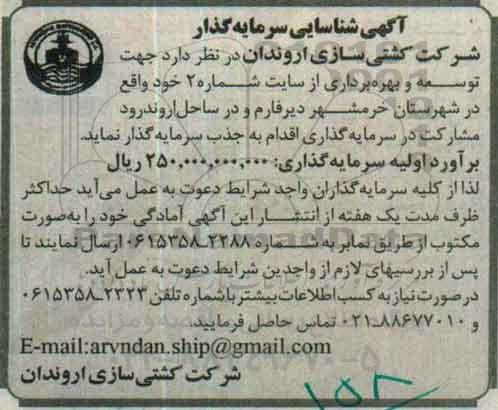 آگهی شناسایی سرمایه‌گذار
شرکت کشتی‌سازی اروندان در نظر دارد جهت
توسعه و بهره‌برداری از سایت شماره۲ خود واقع
در شهرستان خرمشهر دیرفارم و در ساحل اروندرود
مشارکت در سرمایه‌گذاری اقدام به جذب سرمایه‌گذار نماید.
برآورد اولیه سرمایه‌گذاری: ۲۵۰,۰۰۰,۰۰۰,۰۰۰ ریال
لذا از کلیه سرمایه‌گذاران واجد شرایط دعوت به عمل می‌آید حداکثر
ظرف مدت یک هفته از انتشار این آگهی آمادگی خود را به‌صورت
مکتوب از طریق نمابر به شماره ۲۲۸۸-۰۶۱۵۳۵۸ ارسال نمایند تا
پس از بررسیهای لازم از واجدین شرایط دعوت به عمل آید.
در صورت نیاز به کسب اطلاعات بیشتر با شماره تلفن ۲۲۲۳-۰۶۱۵۳۵۸
و ۸۸۶۷۷۰۱۰-۰۲۱ تماس حاصل فرمایید.
E-mail:arvndan.ship@gmail.com
شرکت کشتی‌سازی اروندان
۱۵۸